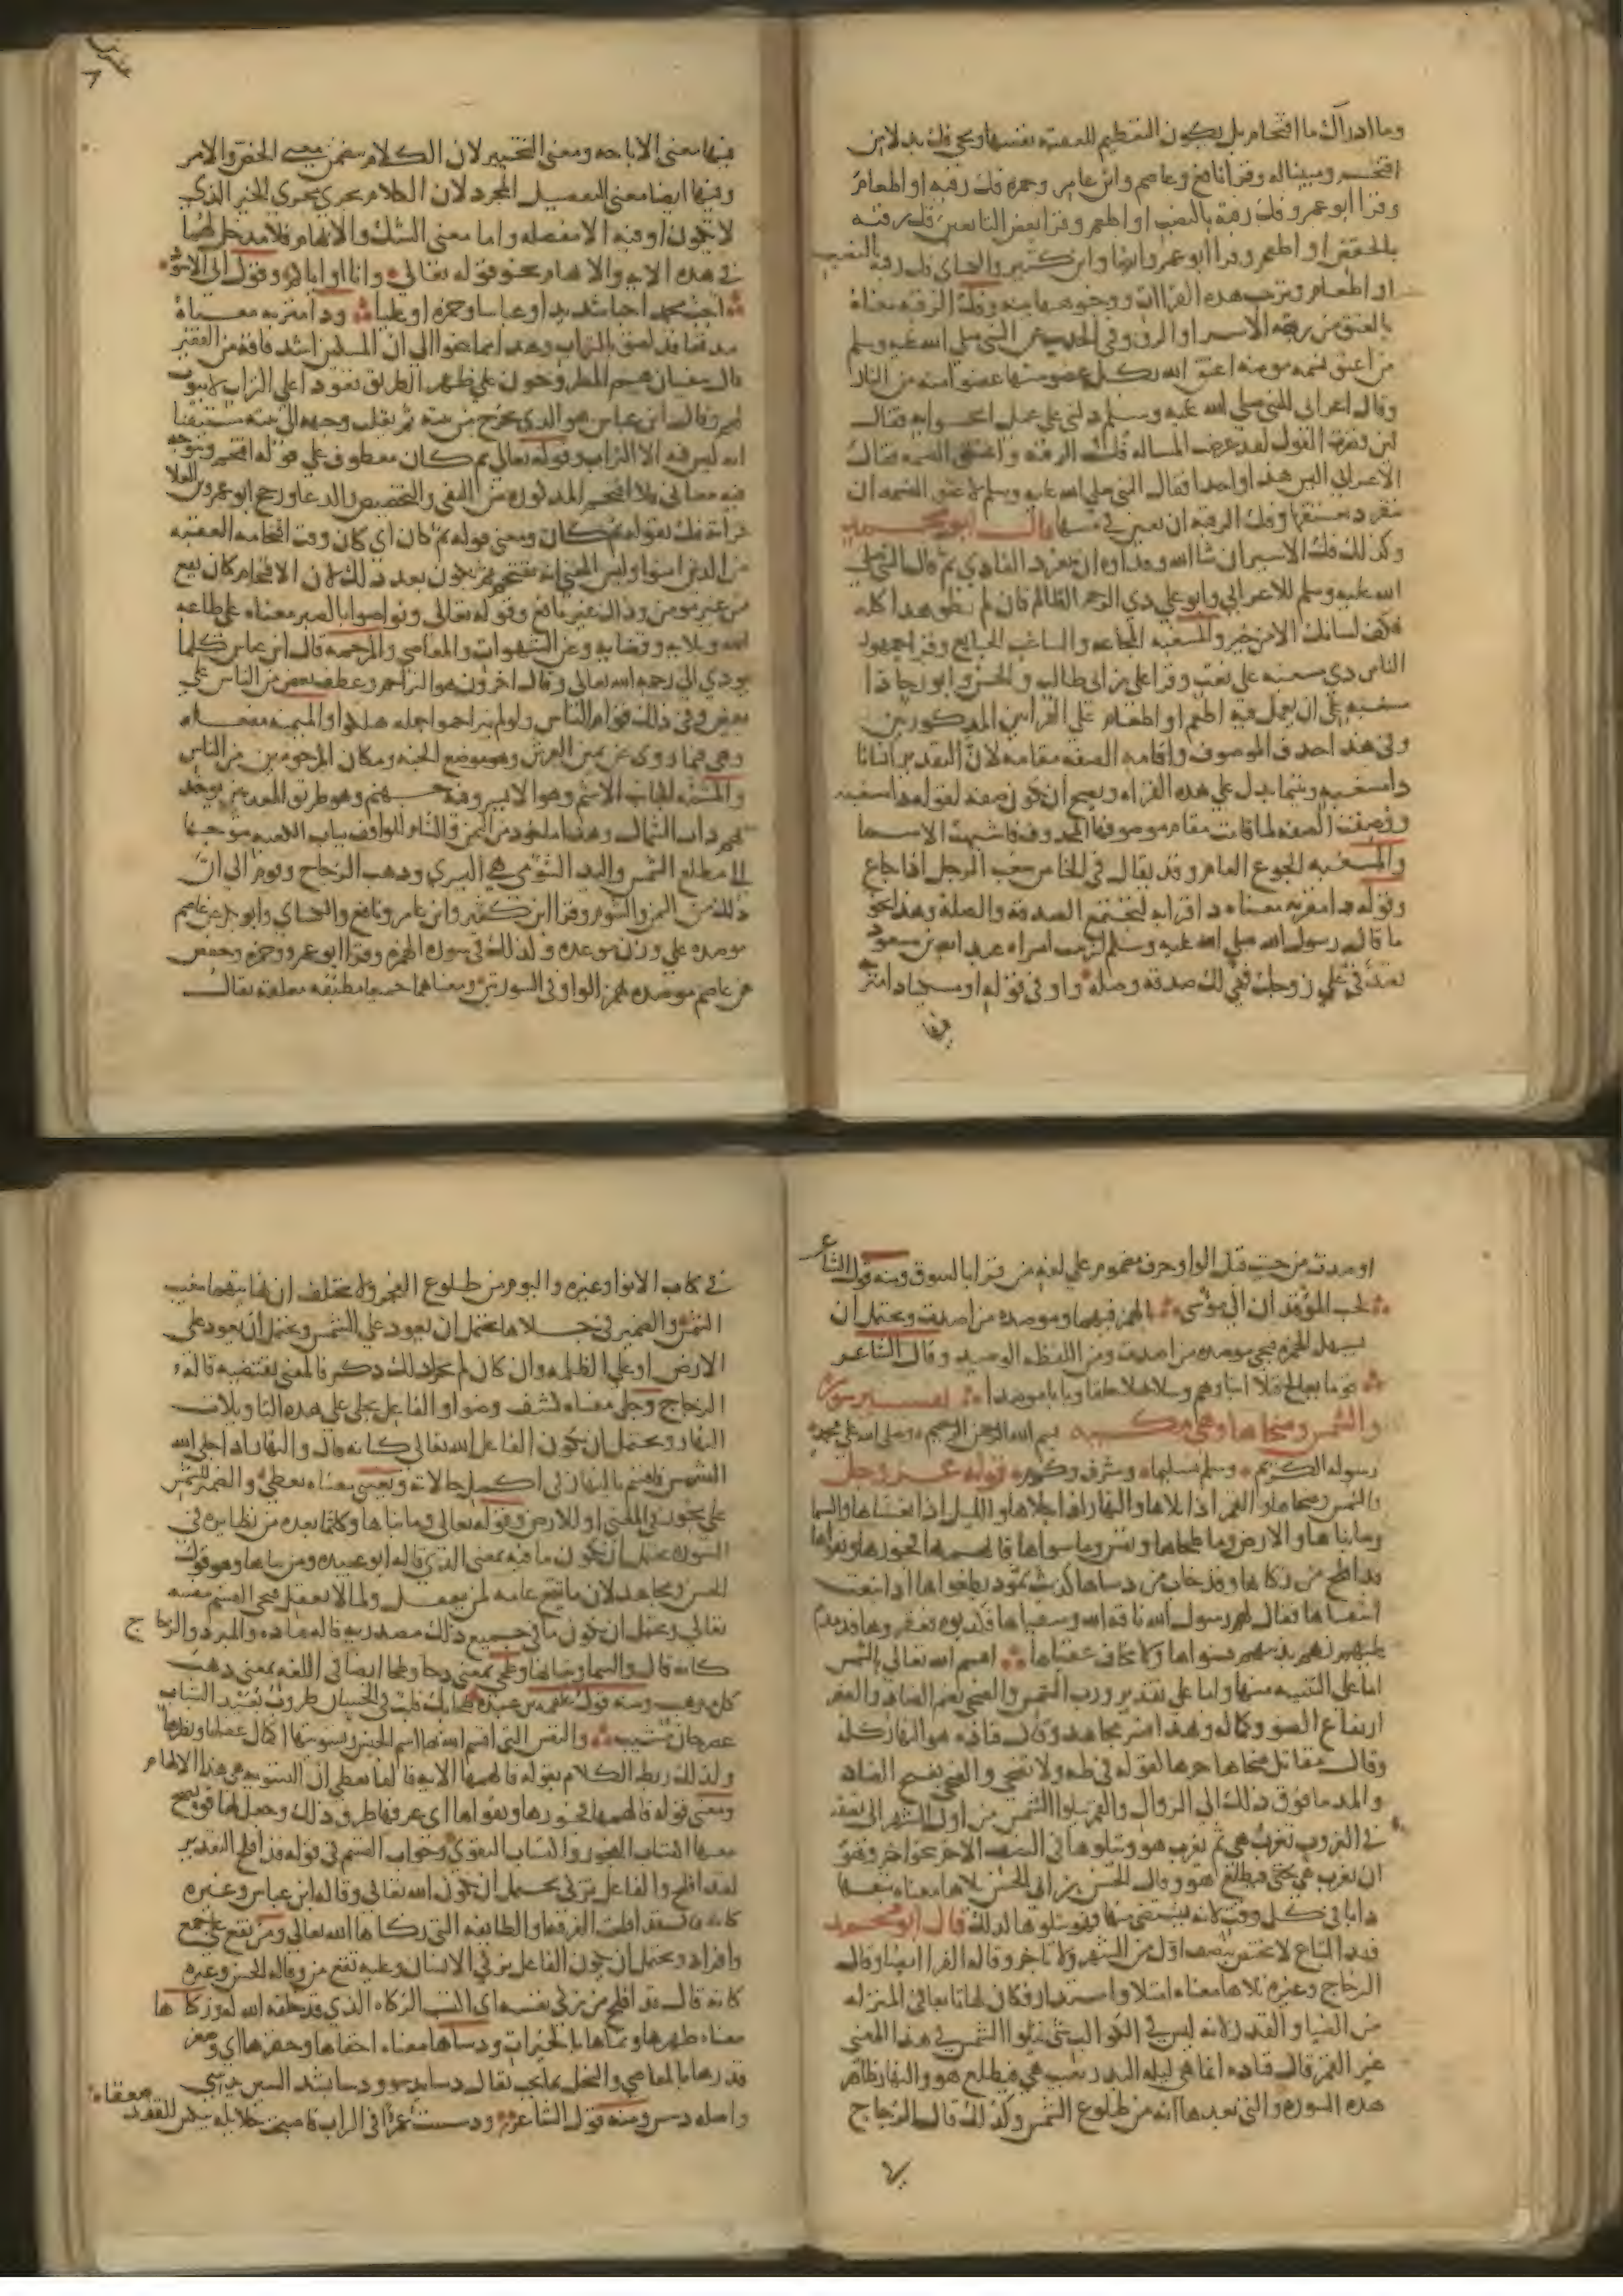 وما ادراك ما اقتحام بل يكون التعظيم للعقبة نفسها ويجي فك بدلا من
اقتحم ومبينا له وقرا نافع وعاصم وابن عامر وحمزه فك رقبه او اطعام
وقرا ابو عمرو فك رقبة بالنصب او اطعم وقرا بعض التابعين فك رقبه
بالخفض او اطعم وقرا ابو عمرو ايضا وابن كثير والكساي فك رقبه بالنصب
او اطعام وترتيب هذه القراات ووجوهها بينه وفك الرقبه معناه
بالعتق من ربقه الاسر او الرق وفي الحديث عن النبي صلى الله عليه وسلم
من اعتق نسمه مومنه اعتق الله بكل عضو منها عضوا منه من النار
وقال اعرابي للنبي صلى الله عليه وسلم دلني على عمل انجوا به فقال
لين قصرت القول لقد عرضت المساله فك الرقبه واعتق النسمه فقال
الاعرابي اليس هذا واحدا فقال النبي صلى الله عليه وسلم لا عتق النسمه ان
تنفرد بعتقها وفك الرقبه ان تعين في ثمنها قال ابو محمد
وكذلك فك الاسير ان شا الله وفداوه ان ينفرد الفادي ثم قال النبي صلى
الله عليه وسلم للاعرابي وابق علي ذي الرحم الظالم فان لم تطق هذا كله
فكف لسانك الا من خير والمسغبه المجاعه والساغب الجايع وقرا جمهور
الناس ذي مسغبه على نعت وقرا علي بن ابي طالب والحسن وابو رجا ذا
مسغبه على ان يعمل فيه اطعم او اطعام على القراتين المذكورتين
وفي هذا حذف الموصوف واقامه الصفه مقامه لان التقدير انسانا
ذا مسغبه
ووصفت الصفه لما قامت مقام موصوفها المحذوف فاشبهت الاسما
والمسغبه الجوع العام وقد يقال في الخاص سغب الرجل اذا جاع
وقوله ذا مقربه معناه ذا قرابه لتجتمع الصدقه والصله وهذا نحو
ما قال رسول الله صلى الله عليه وسلم لزينب امراه عبد الله بن مسعود
تصدقي على زوجك فهي لك صدقه وصله واو في قوله او مسكينا ذا متربه
فيها معنى الاباحه ومعنى التخيير لان الكلام يتضمن معنى الحض والامر
وفيها ايضا معنى التفصيل المجرد لان الكلام يجري مجرى الخبر الذي
لا تكون او فيه الا مفصله واما معنى الشك والابهام فلا مدخل لهما
في هذه الايه والابهام نحو قوله تعالى وانا او اياكم وقول ابي الاسود
احب محمدا حبا شديدا وعباسا وحمزه او عليا وذا متربه معناه
مدقعا قد لصق بالتراب وهذا مما ينحوا الى ان المسكين اشد فاقه من الفقير
قال سفيان هم المطروحون على ظهر الطريق قعودا على التراب لا بيوت
لهم وقال ابن عباس هو الذي يخرج من بيته ثم يقلب وجهه الى بيته مستيقنا
انه ليس فيه الا التراب وقوله تعالى ثم كان معطوف على قوله اقتحم وتتوجه
فيه معاني فلا اقتحم المذكوره من النفي والتخصيص والدعا ورجح ابو عمرو بن العلا
قراته فك بقوله ثم كان ومعنى قوله ثم كان اي كان وقت اقتحامه العقبه
من الذين امنوا وليس المعنى انه يقتحم ثم يكون بعد ذلك لان الاقتحام كان يقع
من غير مومن وذلك غير نافع وقوله تعالى وتواصوا بالصبر معناه على طاعه
الله وبلايه وقضايه وعن الشهوات والمعاصي والمرحمه قال ابن عباس كلما
يودي الى رحمه الله تعالى وقال اخرون هو التراحم وعطف بعض من الناس على
بعض وفي ذلك قوام الناس ولو لم يتراحموا جمله هلكوا والميمنه مفعله
وهي فيما روى عن يمين العرش وهو موضع الجنه ومكان المرحومين من الناس
والمشامه الجانب الاشم وهو الايسر وفيه جهنم وهو طريق المعذبين يوخذ
بهم ذات الشمال وهذا ماخوذ من اليمن والشام للواقف بباب الكعبه متوجها
الى مطلع الشمس واليد الشومى هي اليسرى وذهب الزجاج وقوم الى ان
ذلك من اليمن والشوم وقرا ابن كثير وابن عامر ونافع والكساي وابو بكر عن عاصم
موصده على وزن موعده وكذلك في سوره الهمزه وقرا ابو عمرو وحمزه وحفص
عن عاصم موصده بهمز الواو في السورتين ومعناهما جميعا مطبقه مغلقه يقال
اوصدت من حيث قبل الواو حرف مضموم على لغه من قرا بالسوق ومنه قول الشاعر
لحب الموقدان الي موسى بالهمز فيهما وموصده من اصدت ويحتمل ان
يسهل الهمزه فيجي موصده من اصدت ومن اللفظه الوصيد وقال الشاعر
قوما يعالج قملا ابناوهم وسلاسلا حلقا وبابا موصدا تفسير سوره
والشمس وضحاها وهي مكيه بسم الله الرحمن الرحيم وصلى الله على محمد
رسوله الكريم وسلم تسليما وشرف وكرم قوله عز وجل
والشمس وضحاها والقمر اذا تلاها والنهار اذا جلاها والليل اذا يغشاها والسما
وما بناها والارض وما طحاها ونفس وما سواها فالهمها فجورها وتقواها
قد افلح من زكاها وقد خاب من دساها كذبت ثمود بطغواها اذ انبعث
اشقاها فقال لهم رسول الله ناقه الله وسقياها فكذبوه فعقروها فدمدم
عليهم ربهم بذنبهم فسواها ولا يخاف عقباها اقسم الله تعالى بالشمس
اما على التنبيه منها واما على تقدير ورب الشمس والضحى بضم الضاد والقصر
ارتفاع الضو وكماله وبهذا فسر مجاهد وقال قتاده هو النهار كله
وقال مقاتل ضحاها حرها لقوله في طه ولا تضحى والضحى بفتح الضاد
والمد ما فوق ذلك الى الزوال والقمر يتلوا الشمس من اول الشهر الى نصفه
في الغروب تغرب هي ثم يغرب هو ويتلوها في النصف الاخر بنحو اخر وهو
ان تغرب هي فيطلع هو وقال الحسن بن ابي الحسن تلاها معناه تبعها
دايما في كل وقت لانه يستضي منها فهو يتلوها لذلك قال ابو محمد
فهذا اتباع لا يختص بنصف اول من الشهر ولا باخر وقاله الفرا ايضا وقال
الزجاج وغيره تلاها معناه امتلا واستدار فكان لها تابعا في المنزله
من الضيا والقدر لانه ليس في الكواكب شي يتلوا الشمس في هذا المعنى
غير القمر قال قتاده انما هي ليله البدر تغيب هي فيطلع هو والنهار ظاهر
هذه السوره والتي بعدها انه من طلوع الشمس وكذلك قال الزجاج
في كتاب الانوا وغيره واليوم من طلوع الفجر ولا يختلف ان نهايتهما مغيب
الشمس والضمير في جلاها يحتمل ان يعود على الشمس ويحتمل ان يعود على
الارض او على الظلمه وان كان لم يجر لذلك ذكر فالمعنى يقتضيه قاله
الزجاج وجلى معناه كشف وضوا والفاعل بجلى على هذه التاويلات
النهار ويحتمل ان يكون الفاعل الله تعالى كانه قال والنهار اذا جلى الله
الشمس فاقسم بالنهار في اكمل حالاته ويغشى معناه يغطي والضمير للشمس
على تجوز في المعنى او للارض وقوله تعالى وما بناها وكلما بعده من نظايره في
السوره يحتمل ان يكون ما فيه بمعنى الذي قاله ابو عبيده ومن بناها وهو قول
الحسن ومجاهد لان ما تقع عامه لمن يعقل ولما لا يعقل فيجي القسم بنفسه
تعالى ويحتمل ان يكون ما في جميع ذلك مصدريه قاله قتاده والمبرد والزجاج
كانه قال والسما وبنيانها وطحى بمعنى دحا وطحا ايضا في اللغه بمعنى ذهب
كل مذهب ومنه قول علقمه بن عبده طحا بك قلب في الحسان طروب بعيد الشباب
عصر حان مشيب والنفس التي اقسم الله بها اسم الجنس وتسويتها اكمال عقلها ونظرها
ولذلك ربط الكلام بقوله فالهمها الايه فالفا تعطي ان التسويه هي هذا الالهام
ومعنى قوله فالهمها فجورها وتقواها اي عرفها طرق ذلك وجعل لها قوه يصح
معها اكتساب الفجور واكتساب التقوى وجواب القسم في قوله قد افلح التقدير
لقد افلح والفاعل بزكى يحتمل ان يكون الله تعالى وقاله ابن عباس وغيره
كانه قال قد افلحت الفرقه او الطايفه التي زكاها الله تعالى ومن تقع على جمع
وافراد ويحتمل ان يكون الفاعل بزكى الانسان وعليه تقع من وقاله الحسن وغيره
كانه قال قد افلح من زكى نفسه اي اكتسب الزكاه الذي قد خلقه الله وزكاها
معناه طهرها ونماها بالخيرات ودساها معناه اخفاها وحقرها اي وصغر
قدرها بالمعاصي والبخل بما يجب يقال دسا يدسو ودسا بشد السين يدسي
واصله دسس ومنه قول الشاعر ودسست عمرا في التراب فاصبحت حلايله